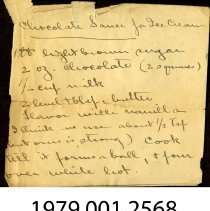 Chocolate Sauce for Ice Cream
1 lb light brown sugar
2 oz. chocolate (2 squares)
1/2 cup milk
2 level tblsp butter
flavor with vanilla
I think we use about 1/2 tsp
ours is strong) Cook
till it forms a ball, & pour
over while hot.
1979.001.2568